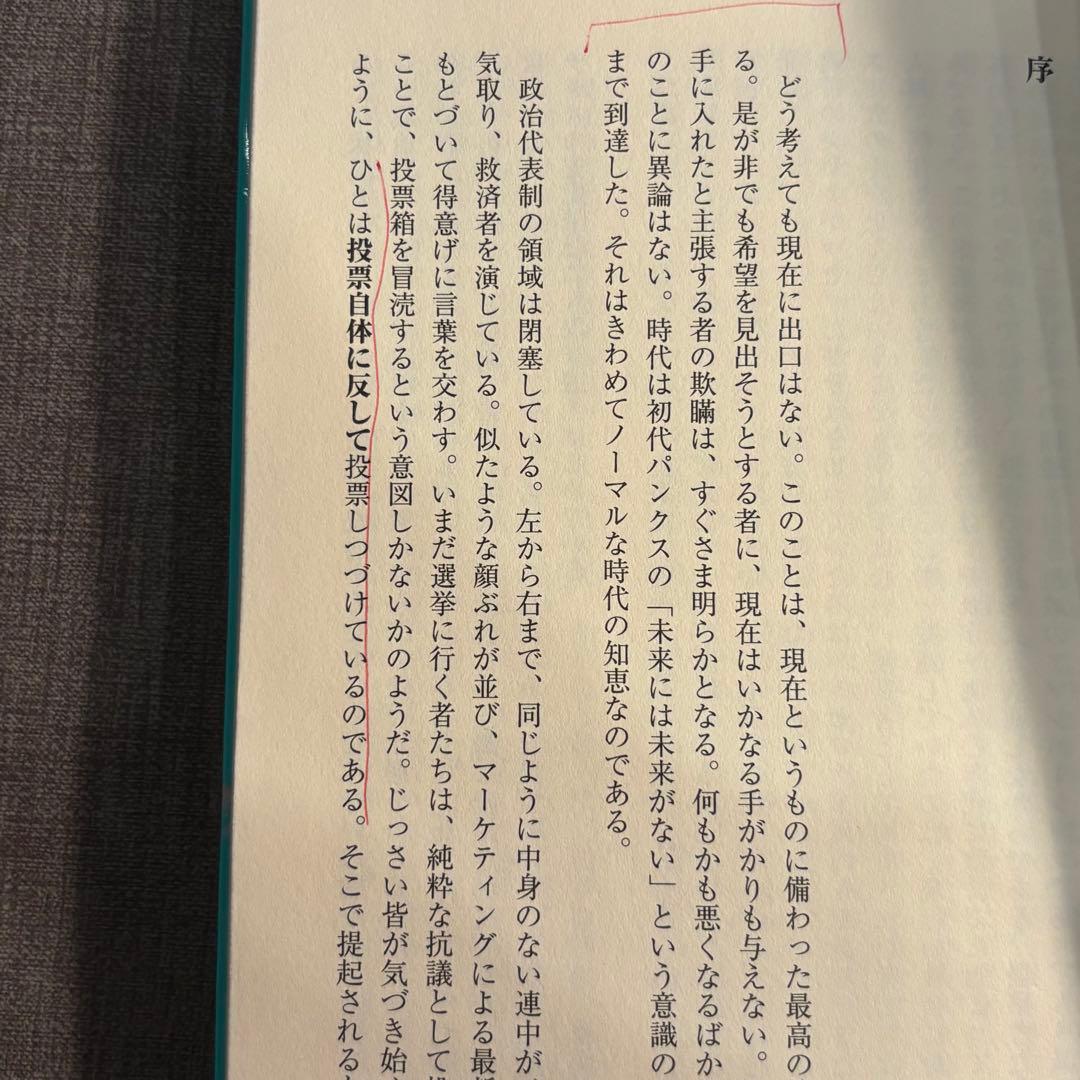 序
どう考えても現在に出口はない。このことは、現在というものに備わった最高の
る。是が非でも希望を見出そうとする者に、現在はいかなる手がかりも与えない。
手に入れたと主張する者の欺瞞は、すぐさま明らかとなる。何もかも悪くなるばか
のことに異論はない。時代は初代パンクスの「未来には未来がない」という意識の
まで到達した。それはきわめてノーマルな時代の知恵なのである。
政治代表制の領域は閉塞している。左から右まで、同じように中身のない連中が
気取り、救済者を演じている。似たような顔ぶれが並び、マーケティングによる最
もとづいて得意げに言葉を交わす。いまだ選挙に行く者たちは、純粋な抗議として
ことで、投票箱を冒涜するという意図しかないかのようだ。じっさい皆が気づき始
ように、ひとは投票自体に反して投票しつづけているのである。そこで提起される